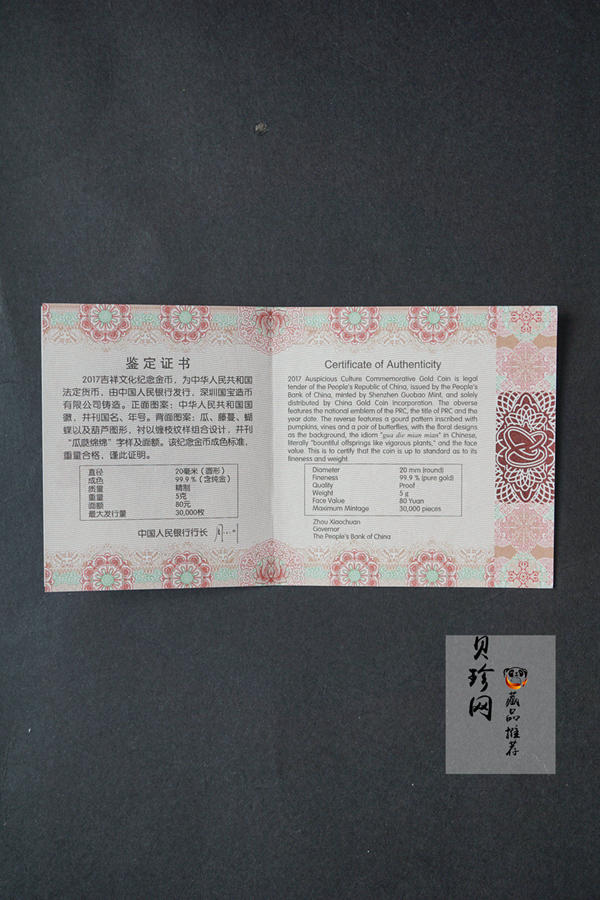 鉴定证书
2017吉祥文化纪念金币，为中华人民共和国
法定货币，由中国人民银行发行，深圳国宝造币
有限公司铸造。正面图案：中华人民共和国国
徽，并刊国名、年号。背面图案：瓜、藤蔓、蝴
蝶以及葫芦图形，衬以缠枝纹样组合设计，并刊
“瓜瓞绵绵”字样及面额。该纪念金币成色标准，
重量合格，谨此证明。
直径 20毫米（圆形）
成色 99.9％（含纯金）
质量 精制
重量 5克
面额 80元
最大发行量 30,000枚
中国人民银行行长
Certificate of Authenticity
2017 Auspicious Culture Commemorative Gold Coin is legal
tender of the People's Republic of China, issued by the People's
Bank of China, minted by Shenzhen Guobao Mint, and solely
distributed by China Gold Coin Incorporation. The obverse
features the national emblem of the PRC, the title of PRC and the
year date. The reverse features a gourd pattern inscribed with
pumpkins, vines and a pair of butterflies, with the floral designs
as the background, the idiom "gua die mian mian" in Chinese,
literally "bountiful offsprings like vigorous plants," and the face
value. This is to certify that the coin is up to standard as to its
fineness and weight
Diameter 20 mm (round)
Fineness 99.9 % (pure gold)
Quality Proof
Weight 5 g
Face Value 80 Yuan
Maximum Mintage 30,000 pieces
Zhou Xiaochuan
Governor
The People's Bank of China
贝珍网
藏品推荐